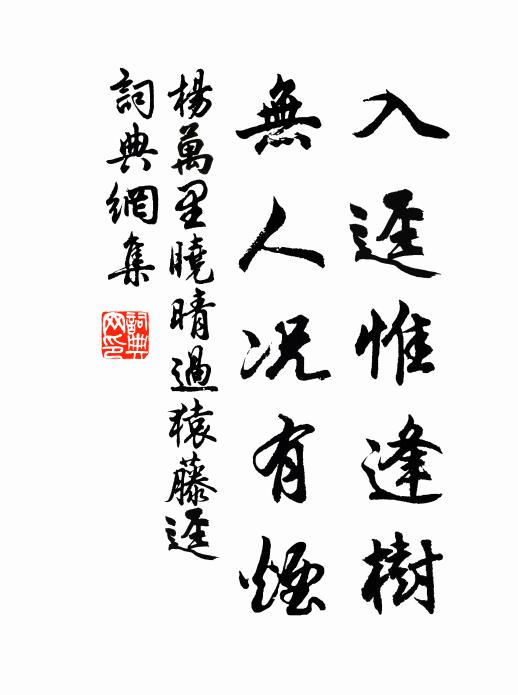 入迳惟逢樹
無人况有煙
楊萬里曉晴過猿藤迳
詞典網集
詞典網印